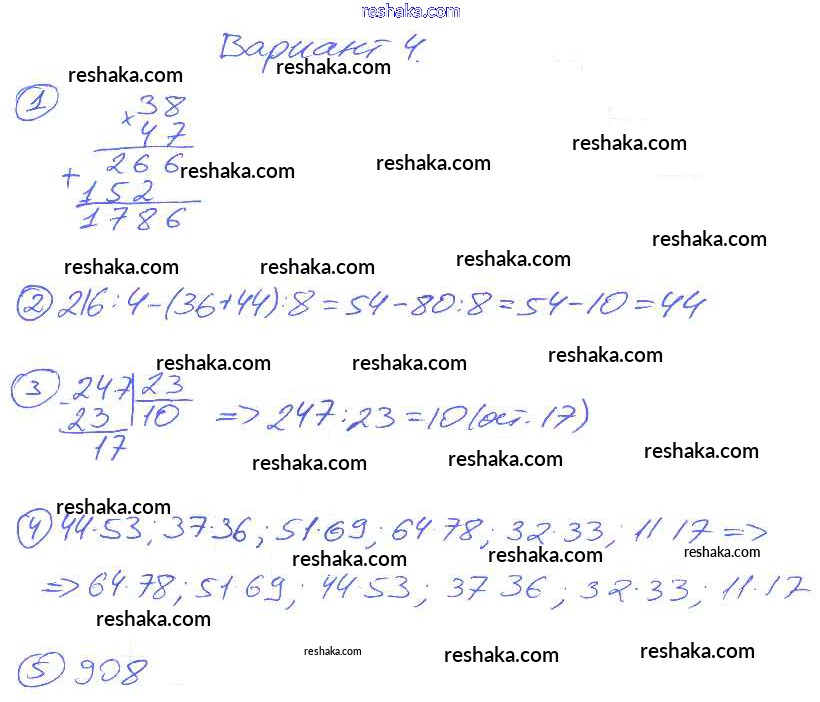 reshaka.com
Вариант 4.
reshaka.com
reshaka.com
① × 38
47
reshaka.com
+ 266
reshaka.com
reshaka.com
152
1786
reshaka.com
reshaka.com
reshaka.com
reshaka.com
② 216:4-(36+44):8=54-80:8=54-10=44
reshaka.com
reshaka.com
reshaka.com
③ - 247 | 23
23 | 10 => 247:23=10(ост.17)
17
reshaka.com
reshaka.com
reshaka.com
reshaka.com
④ 44·53; 37·36; 51·69; 64·78; 32·33; 11·17 =>
reshaka.com
reshaka.com
reshaka.com
=> 64·78; 51·69; 44·53; 37·36; 32·33; 11·17
reshaka.com
reshaka.com
reshaka.com
reshaka.com
⑤ 908